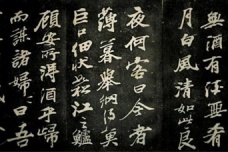 無酒有酒無肴
月白風清如此良
夜何客曰今者
薄暮舉網得魚
巨口細狀如松江鱸
顧安所得酒乎歸
而謀諸婦曰吾